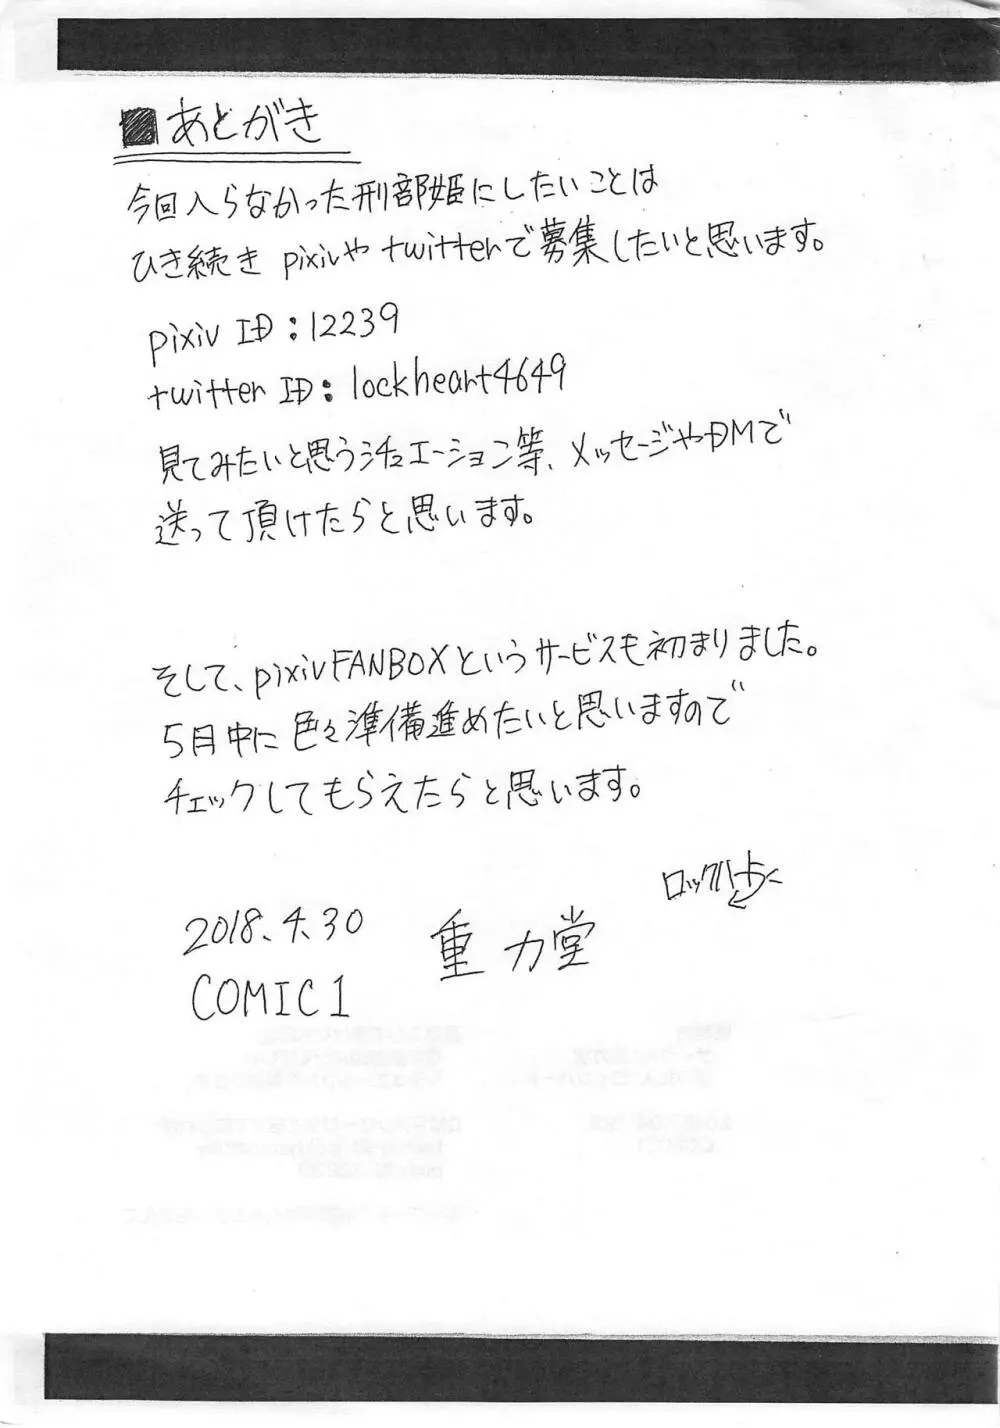 ■あとがき
今回入らなかった刑部姫にしたいことは
ひき続き pixivや twitterで募集したいと思います。
pixiv ID：12239
twitter ID：lockheart4649
見てみたいと思うシチュエーション等、メッセージやDMで
送って頂けたらと思います。
そして、pixivFANBOXというサービスも初まりました。
5月中に色々準備進めたいと思いますので
チェックしてもらえたらと思います。
ロックハート
2018.4.30 重力堂
COMIC1